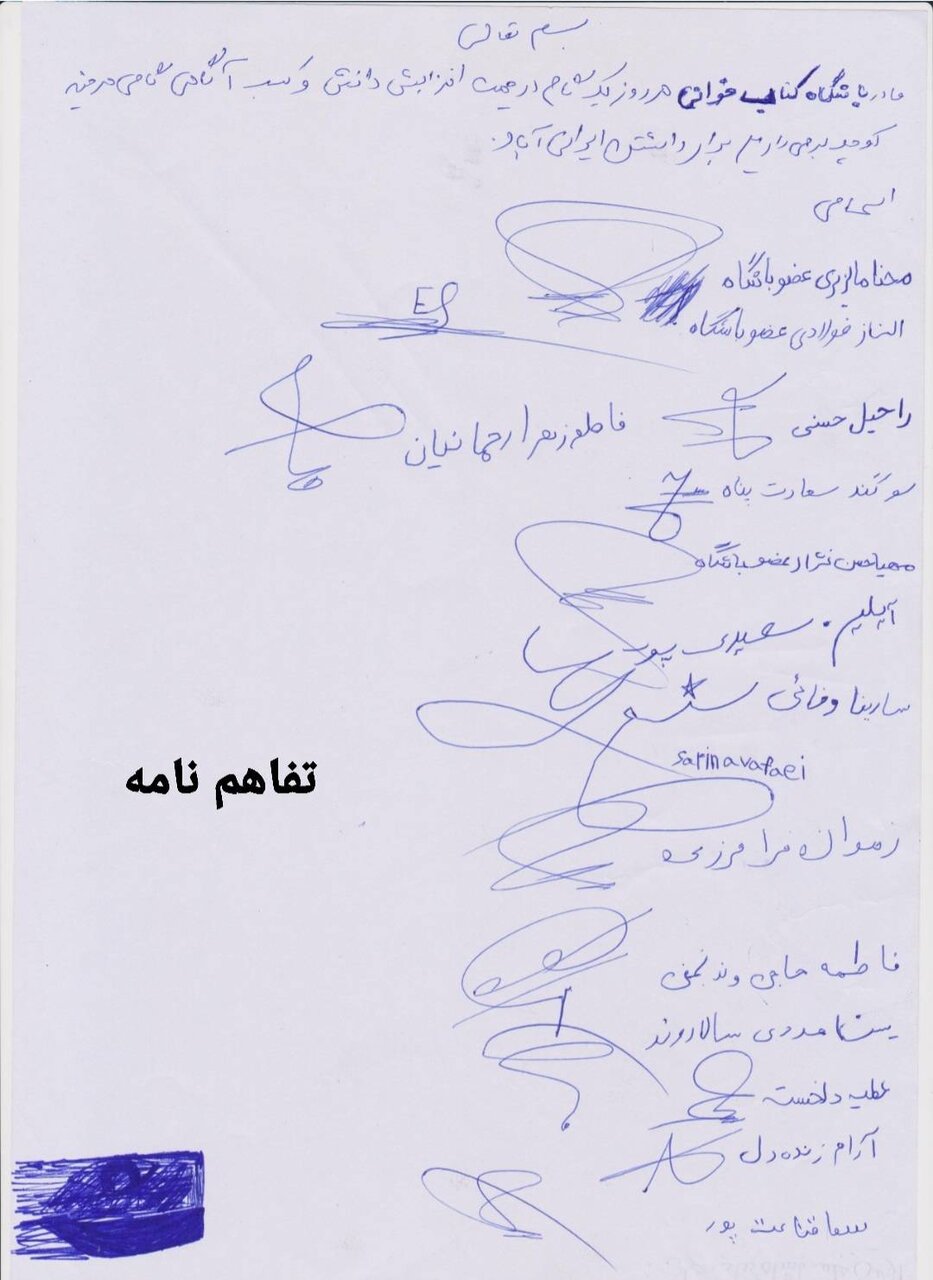 بسم تعالی
ما در باشگاه کتاب خوانی هر روز یک شام در جهت افزایش دانش و کسب آگاهی گامی هرچند
کوچک برمی داریم برای داشتن ایرانی آباد.
اسامی
عضو باشگاه
الناز فولادی عضو باشگاه
ES
راحیل حسنی
فاطمه زهرا رحمانیان
سوگند سعادت پناه
عضو باشگاه
آیلین سعیدی پور
سارینا وفائی
sarinavafaei
تفاهم نامه
فرامرزی
فاطمه حاجی وند
یسنا مددی سالاروند
عطیه دلخسته
آرام زنده دل
قناعت پور